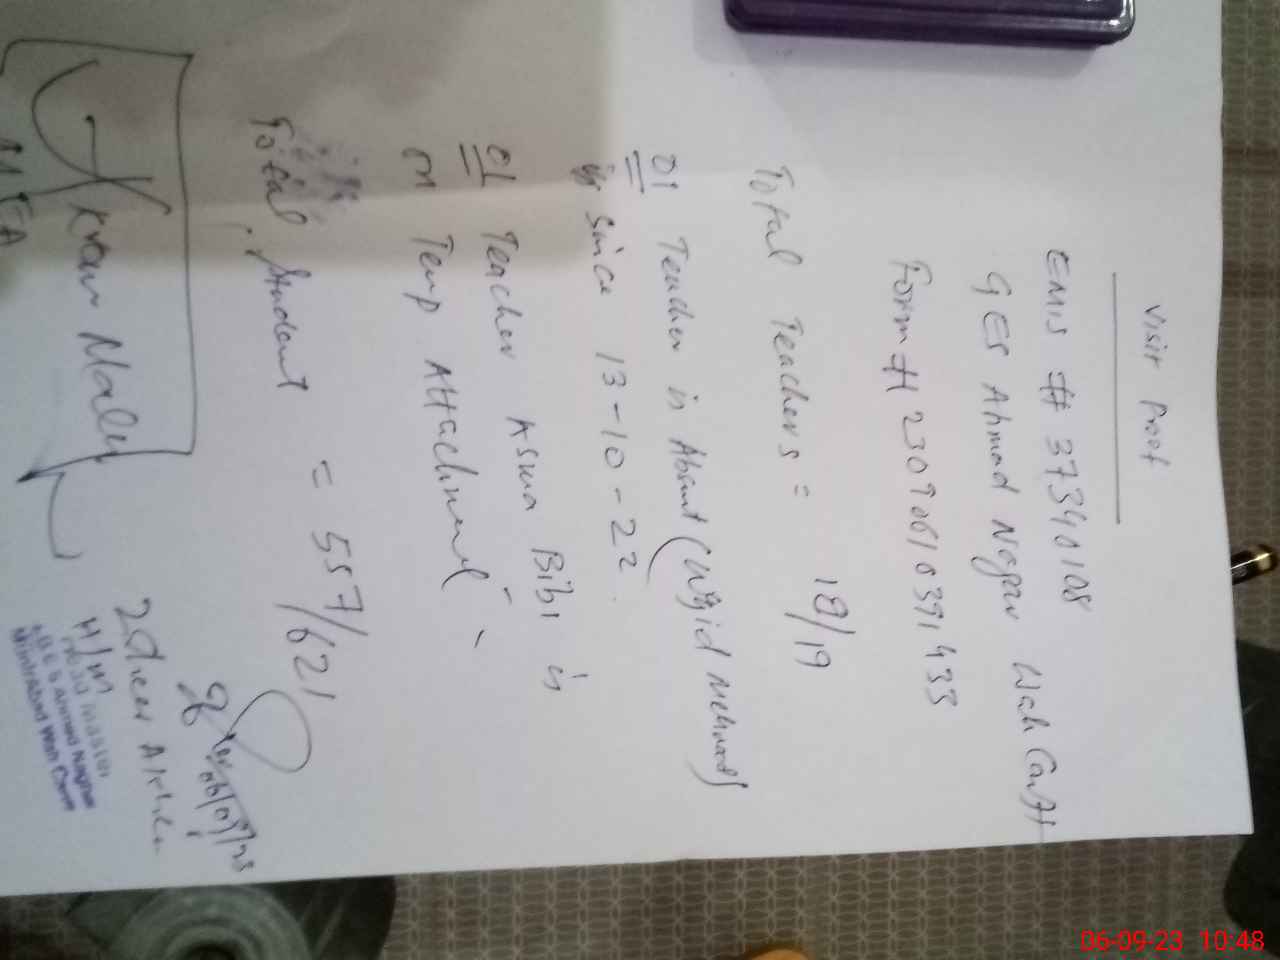 Visit Proof
EMIS # 37340108
GES Ahmad Nagar Wah Cantt
Form # 23090610391433
Total Teachers = 18/19
01 Teacher is Absent (Wajid Mehmood)
is since 13-10-22.
01 Teacher Asma Bibi is
on Temp Attachment -
Total Student = 557/621
06/09/23
H/M
Ahmad Nagar
Wah Cantt
MEA
06-09-23 10:48